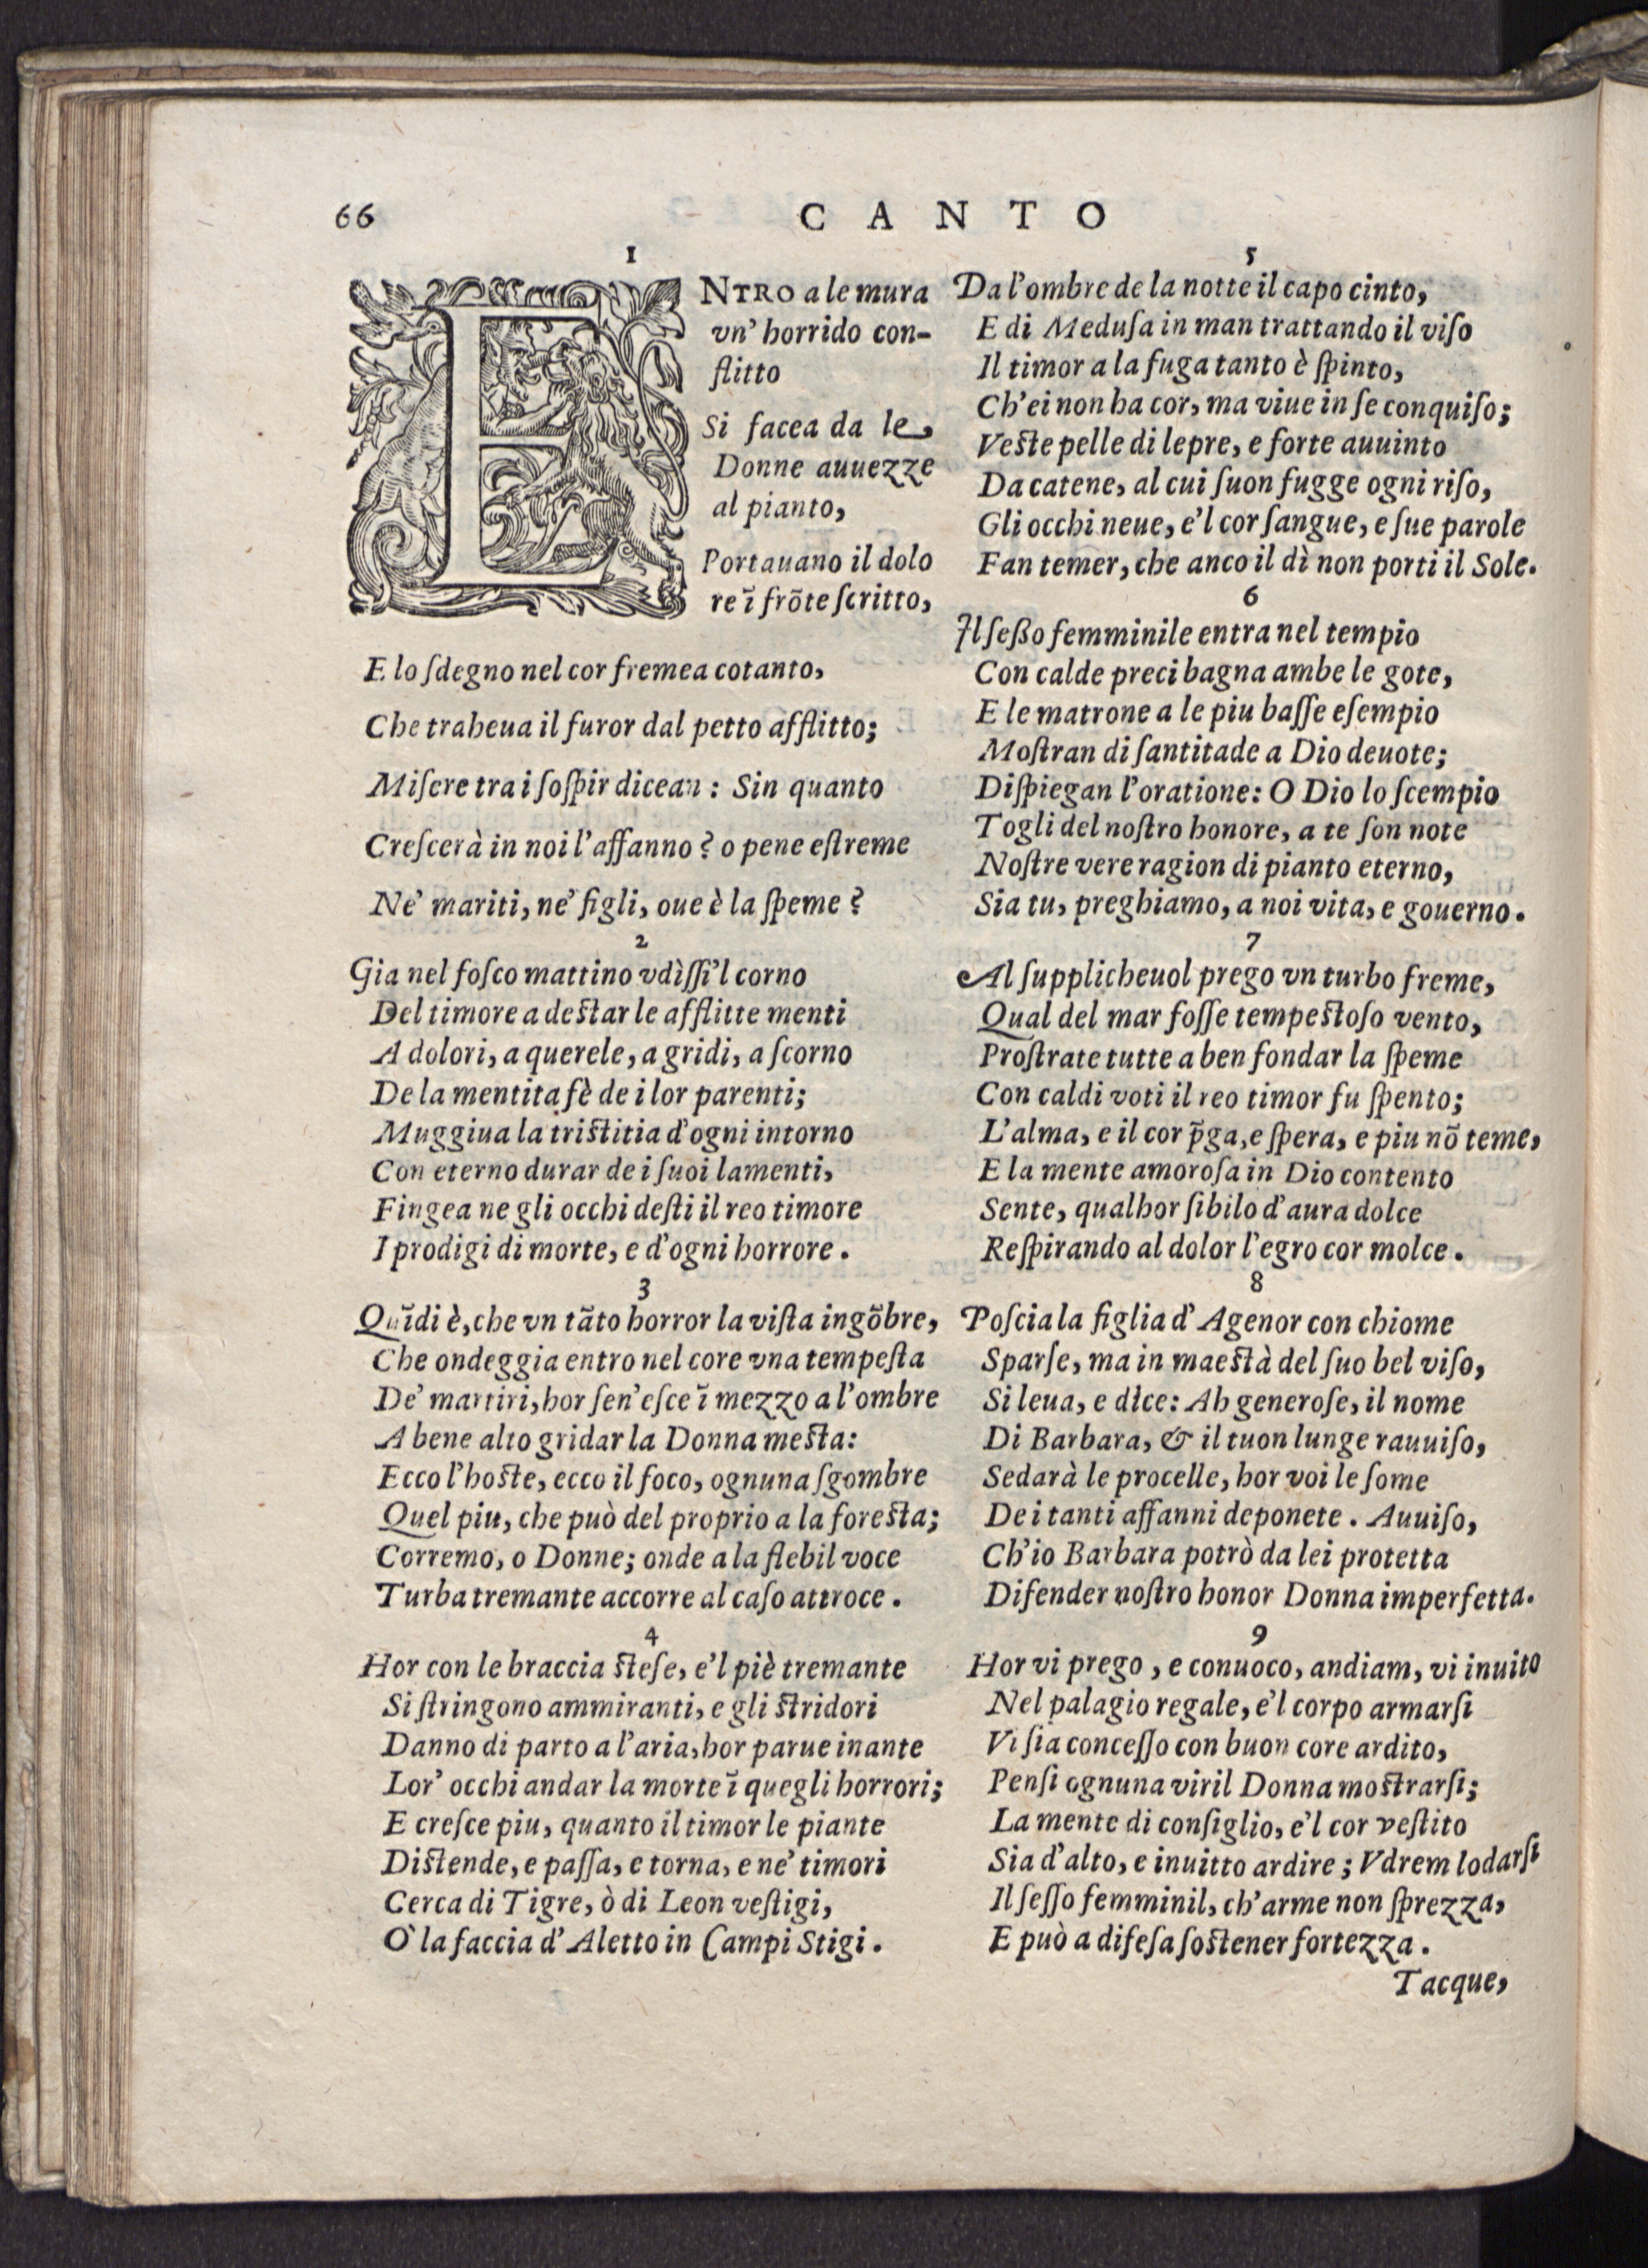 66
CANTO
1
ENTRO a le mura
vn' horrido con-
flitto
Si facea da le
Donne auuezze
al pianto,
Portauano il dolo
re ĩ frõte ſcritto,
E lo ſdegno nel cor fremea cotanto,
Che traheua il furor dal petto afflitto;
Miſere tra i ſoſpir dicean: Sin quanto
Creſcerà in noi l'affanno? o pene eſtreme
Ne' mariti, ne' figli, oue è la ſpeme?
2
Gia nel foſco mattino vdìſſi'l corno
Del timore a deſtar le afflitte menti
A dolori, a querele, a gridi, a ſcorno
De la mentita fè de i lor parenti;
Muggiua la triſtitia d'ogni intorno
Con eterno durar de i ſuoi lamenti,
Fingea ne gli occhi deſti il reo timore
I prodigi di morte, e d'ogni horrore.
3
Quĩdi è, che vn tãto horror la viſta ingõbre,
Che ondeggia entro nel core vna tempeſta
De' martiri, hor ſen'eſce ĩ mezzo a l'ombre
A bene alto gridar la Donna meſta:
Ecco l'hoſte, ecco il foco, ognuna ſgombre
Quel piu, che può del proprio a la foreſta;
Corremo, o Donne; onde a la flebil voce
Turba tremante accorre al caſo attroce.
4
Hor con le braccia ſteſe, e'l piè tremante
Si ſtringono ammiranti, e gli ſtridori
Danno di parto a l'aria, hor parue inante
Lor' occhi andar la morte ĩ quegli horrori;
E creſce piu, quanto il timor le piante
Diſtende, e paſſa, e torna, e ne' timori
Cerca di Tigre, ò di Leon veſtigi,
Ò la faccia d'Aletto in Campi Stigi.
5
Da l'ombre de la notte il capo cinto,
E di Meduſa in man trattando il viſo
Il timor a la fuga tanto è ſpinto,
Ch'ei non ha cor, ma viue in ſe conquiſo;
Veſte pelle di lepre, e forte auuinto
Da catene, al cui ſuon fugge ogni riſo,
Gli occhi neue, e'l cor ſangue, e ſue parole
Fan temer, che anco il dì non porti il Sole.
6
Il ſeßo femminile entra nel tempio
Con calde preci bagna ambe le gote,
E le matrone a le piu baſſe eſempio
Moſtran di ſantitade a Dio deuote;
Diſpiegan l'oratione: O Dio lo ſcempio
Togli del noſtro honore, a te ſon note
Noſtre vere ragion di pianto eterno,
Sia tu, preghiamo, a noi vita, e gouerno.
7
Al ſupplicheuol prego vn turbo freme,
Qual del mar foſſe tempeſtoſo vento,
Proſtrate tutte a ben fondar la ſpeme
Con caldi voti il reo timor fu ſpento;
L'alma, e il cor p̃ga, e ſpera, e piu nõ teme,
E la mente amoroſa in Dio contento
Sente, qualhor ſibilo d'aura dolce
Reſpirando al dolor l'egro cor molce.
8
Poſcia la figlia d'Agenor con chiome
Sparſe, ma in maeſtà del ſuo bel viſo,
Si leua, e dice: Ah generoſe, il nome
Di Barbara, & il tuon lunge rauuiſo,
Sedarà le procelle, hor voi le ſome
De i tanti affanni deponete. Auuiſo,
Ch'io Barbara potrò da lei protetta
Difender noſtro honor Donna imperfetta.
9
Hor vi prego, e conuoco, andiam, vi inuito
Nel palagio regale, e'l corpo armarſi
Vi ſia conceſſo con buon core ardito,
Penſi ognuna viril Donna moſtrarſi;
La mente di conſiglio, e'l cor veſtito
Sia d'alto, e inuitto ardire; Vdrem lodarſi
Il ſeſſo femminil, ch'arme non ſprezza,
E può a difeſa ſoſtener fortezza.
Tacque,